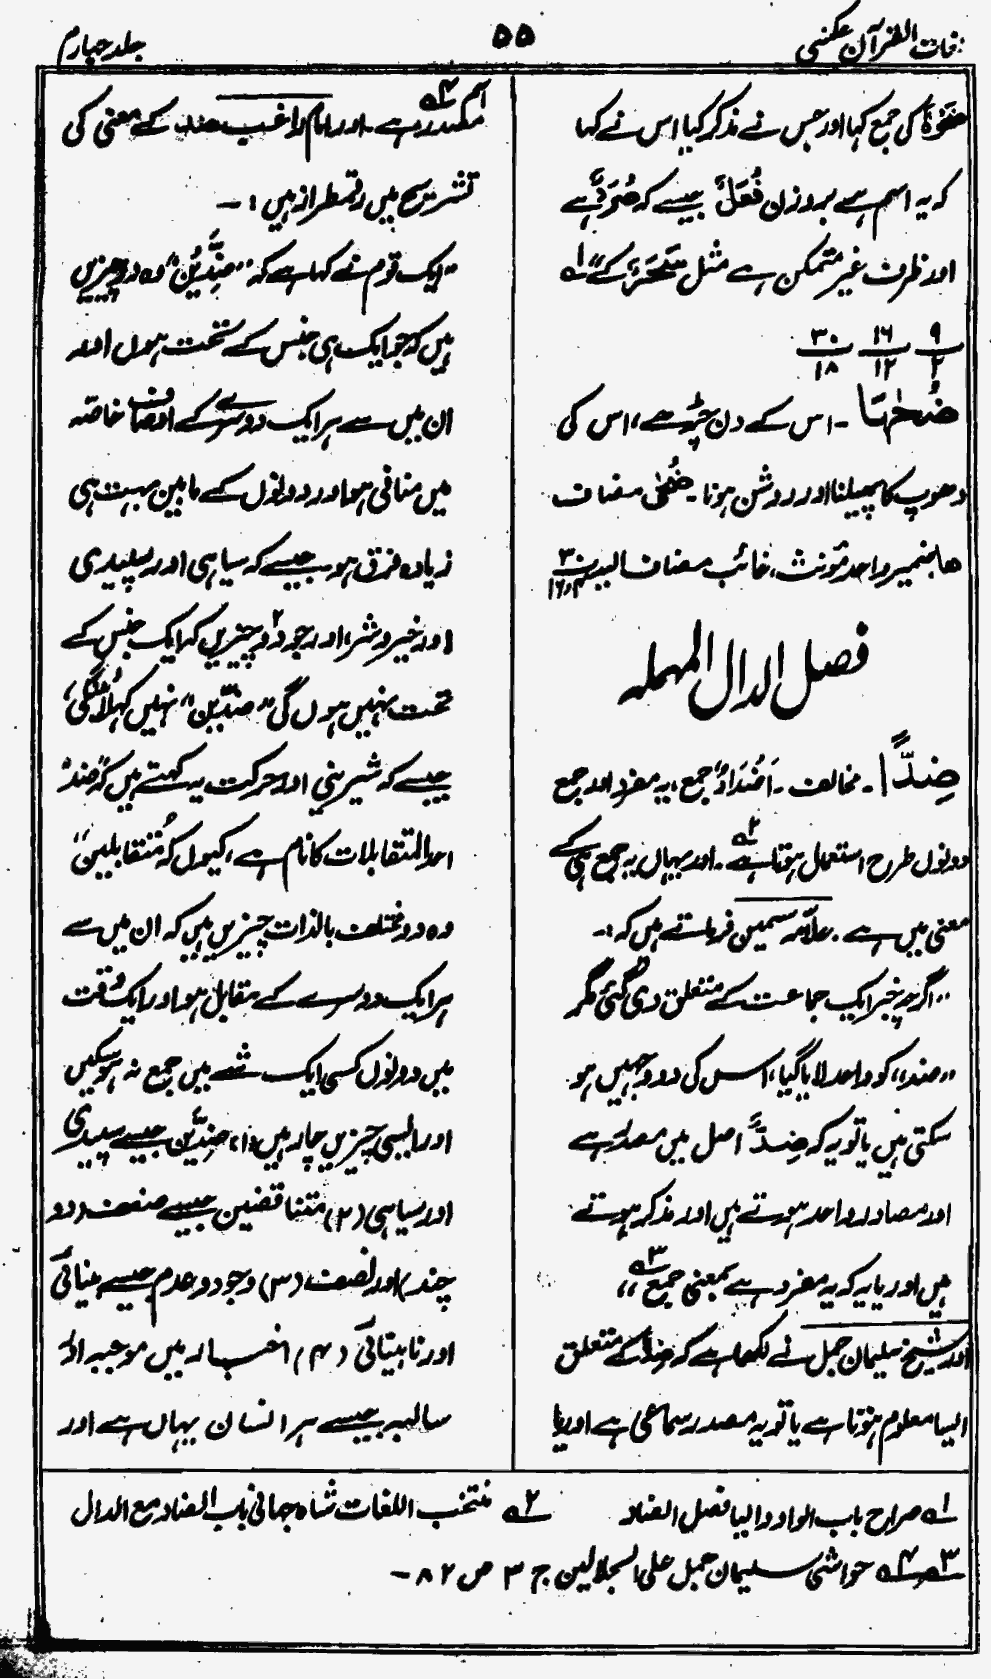 لغات القرآن عکسی
۵۵
جلد چہارم
ضَحْوَۃٌ کی جمع کہا اور جس نے مذکر کیا اس نے کہا
کہ یہ اسم ہے بروزن فُعَلٌ جیسے کہ صُرَدٌ ہے
اور ظرف غیر متمکن ہے مثل سَحَرَ کے" ۱ے
۹ ۱۶ ۳۰
۲ ۱۲ ۱۸
ضُحٰہَا - اس کے دن چڑھے، اس کی
دھوپ کا پھیلنا اور روشن ہونا - ضُحٰی مضاف
ھا ضمیر واحد مؤنث، غائب مضاف الیہ ۳۰
۱۶،۳
فصل الدال المہملہ
ضِدًّا - مخالف - اَضْدَادٌ جمع، یہ مفرد اور جمع
دونوں طرح استعمال ہوتا ہے ۲ے - اور یہاں یہ جمع ہی کے
معنی میں ہے - علّامہ سمین فرماتے ہیں کہ :-
"اگرچہ خبر ایک جماعت کے متعلق دی گئی مگر
"ضد"، کو واحد لایا گیا، اس کی دو وجہیں ہو
سکتی ہیں یا تو یہ کہ ضِدٌّ اصل میں مصدر ہے
اور مصادر واحد ہوتے ہیں اور مذکر ہوتے
ہیں اور یا یہ کہ یہ مفرد ہے بمعنی جمع ۳ے"
اور شیخ سلیمان جمل نے لکھا ہے کہ ضِدًّا کے متعلق
ایسا معلوم ہوتا ہے یا تو یہ مصدر سماعی ہے اور یا
اسم مصدر ہے ۴ے - اور امام راغب ضد کے معنی کی
تشریح میں رقمطراز ہیں :-
"ایک قوم نے کہا ہے کہ "ضِدَّیْن" وہ دو چیزیں
ہیں کہ جو ایک ہی جنس کے تحت ہوں اور
ان میں سے ہر ایک دوسرے کے اوصاف خاصّہ
میں منافی ہو اور دونوں کے مابین بہت ہی
زیادہ فرق ہو جیسے کہ سیاہی اور سپیدی
اور خیر و شر، اور جو دو ۲ چیزیں کہ ایک جنس کے
تحت نہیں ہوں گی "ضدّین" نہیں کہلائیں گی،
جیسے کہ شیرینی اور حرکت یہ کہتے ہیں کہ "ضد"
احد المتقابلات کا نام ہے، کیوں کہ مُتقابلین"
وہ دو مختلف بالذات چیزیں ہیں کہ ان میں سے
ہر ایک دوسرے کے مقابل ہو اور ایک وقت
میں دونوں کسی ایک شے میں جمع نہ ہو سکیں
اور ایسی چیزیں چار ہیں (۱) ضدّین جیسے سپیدی
اور سیاہی (۲) متناقضین جیسے ضعف (دو
چند) اور نصف (۳) وجود و عدم جیسے بینائی
اور نابینائی (۴) اخبار میں موجبہ اور
سالبہ جیسے ہر انسان یہاں ہے اور
۱ے صراح باب الواو والیا فصل الضاد
۲ے منتخب اللغات شاہ جہانی باب الضاد مع الدال
۳ے، ۴ے حواشی سلیمان جمل علی الجلالین ج ۳ ص ۸۲ -